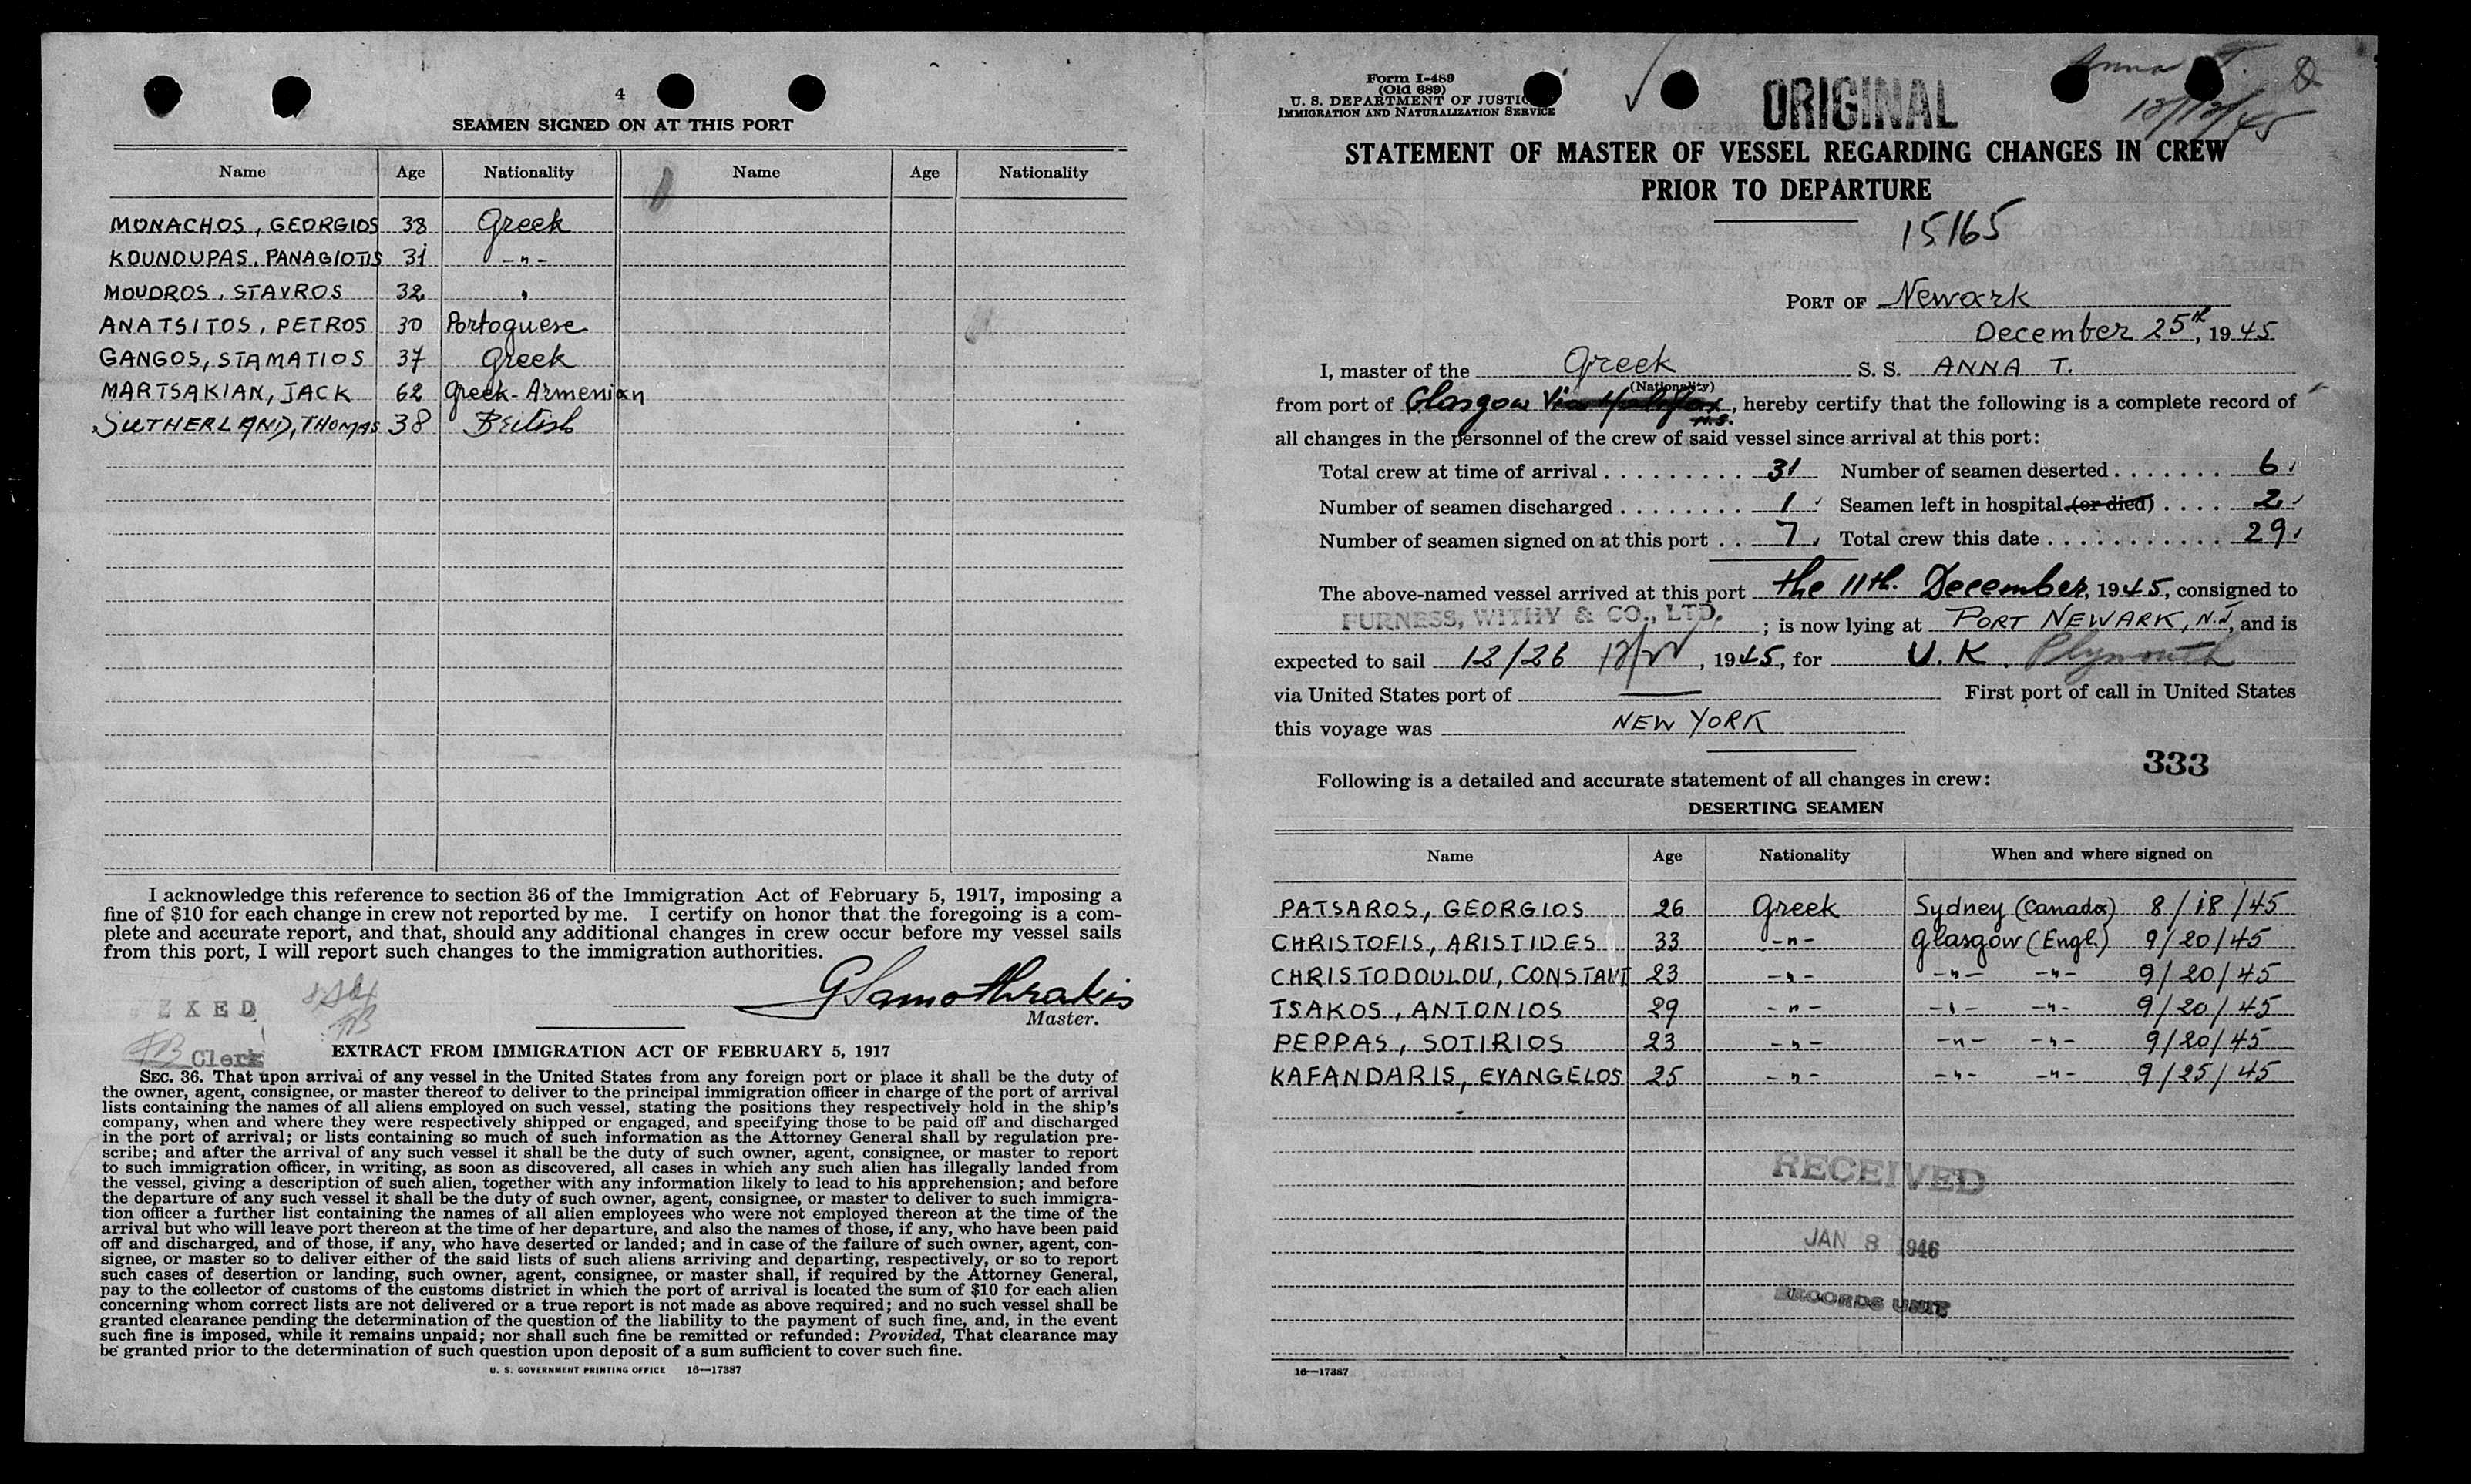 4
SEAMEN SIGNED ON AT THIS PORT
Name Age Nationality Name Age Nationality
MONACHOS, GEORGIOS 38 Greek
KOUNDUPAS, PANAGIOTIS 31 -"-
MOUDROS, STAVROS 32 "
ANATSITOS, PETROS 30 Portoguese
GANGOS, STAMATIOS 37 Greek
MARTSAKIAN, JACK 62 Greek-Armenian
SUTHERLAND, THOMAS 38 British
I acknowledge this reference to section 36 of the Immigration Act of February 5, 1917, imposing a
fine of $10 for each change in crew not reported by me. I certify on honor that the foregoing is a com-
plete and accurate report, and that, should any additional changes in crew occur before my vessel sails
from this port, I will report such changes to the immigration authorities.
GSamothrakis
Master.
EXED
Clerk
EXTRACT FROM IMMIGRATION ACT OF FEBRUARY 5, 1917
SEC. 36. That upon arrival of any vessel in the United States from any foreign port or place it shall be the duty of
the owner, agent, consignee, or master thereof to deliver to the principal immigration officer in charge of the port of arrival
lists containing the names of all aliens employed on such vessel, stating the positions they respectively hold in the ship's
company, when and where they were respectively shipped or engaged, and specifying those to be paid off and discharged
in the port of arrival; or lists containing so much of such information as the Attorney General shall by regulation pre-
scribe; and after the arrival of any such vessel it shall be the duty of such owner, agent, consignee, or master to report
to such immigration officer, in writing, as soon as discovered, all cases in which any such alien has illegally landed from
the vessel, giving a description of such alien, together with any information likely to lead to his apprehension; and before
the departure of any such vessel it shall be the duty of such owner, agent, consignee, or master to deliver to such immigra-
tion officer a further list containing the names of all alien employees who were not employed thereon at the time of the
arrival but who will leave port thereon at the time of her departure, and also the names of those, if any, who have been paid
off and discharged, and of those, if any, who have deserted or landed; and in case of the failure of such owner, agent, con-
signee, or master so to deliver either of the said lists of such aliens arriving and departing, respectively, or so to report
such cases of desertion or landing, such owner, agent, consignee, or master shall, if required by the Attorney General,
pay to the collector of customs of the customs district in which the port of arrival is located the sum of $10 for each alien
concerning whom correct lists are not delivered or a true report is not made as above required; and no such vessel shall be
granted clearance pending the determination of the question of the liability to the payment of such fine, and, in the event
such fine is imposed, while it remains unpaid; nor shall such fine be remitted or refunded: Provided, That clearance may
be granted prior to the determination of such question upon deposit of a sum sufficient to cover such fine.
U. S. GOVERNMENT PRINTING OFFICE 16—17387
Form I-489
(Old 689)
U. S. DEPARTMENT OF JUSTICE
IMMIGRATION AND NATURALIZATION SERVICE
ORIGINAL
Anna T.
12/12/45
STATEMENT OF MASTER OF VESSEL REGARDING CHANGES IN CREW
PRIOR TO DEPARTURE
15165
PORT OF Newark
December 25th, 1945
I, master of the Greek S. S. ANNA T.
(Nationality)
from port of Glasgow Via Halifax N.S., hereby certify that the following is a complete record of
all changes in the personnel of the crew of said vessel since arrival at this port:
Total crew at time of arrival 31 Number of seamen deserted 6
Number of seamen discharged 1 Seamen left in hospital (or died) 2
Number of seamen signed on at this port 7 Total crew this date 29
The above-named vessel arrived at this port the 11th. December, 1945, consigned to
FURNESS, WITHY & CO., LTD. ; is now lying at PORT NEWARK, N.J, and is
expected to sail 12/26, 1945, for U.K. Plymouth
via United States port of — First port of call in United States
this voyage was NEW YORK
333
Following is a detailed and accurate statement of all changes in crew:
DESERTING SEAMEN
Name Age Nationality When and where signed on
PATSAROS, GEORGIOS 26 Greek Sydney (Canada) 8/18/45
CHRISTOFIS, ARISTIDES 33 -"- Glasgow (Engl.) 9/20/45
CHRISTODOULOU, CONSTANT 23 -"- -"- -"- 9/20/45
TSAKOS, ANTONIOS 29 -"- -"- -"- 9/20/45
PEPPAS, SOTIRIOS 23 -"- -"- -"- 9/20/45
KAFANDARIS, EVANGELOS 25 -"- -"- -"- 9/25/45
RECEIVED
JAN 8 1946
RECORDS UNIT
16—17387